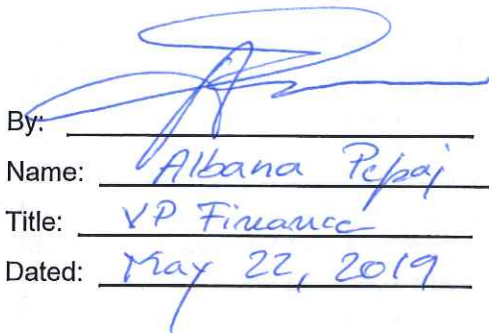 By:
Name: Albana Pepaj
Title: VP Finance
Dated: May 22, 2019